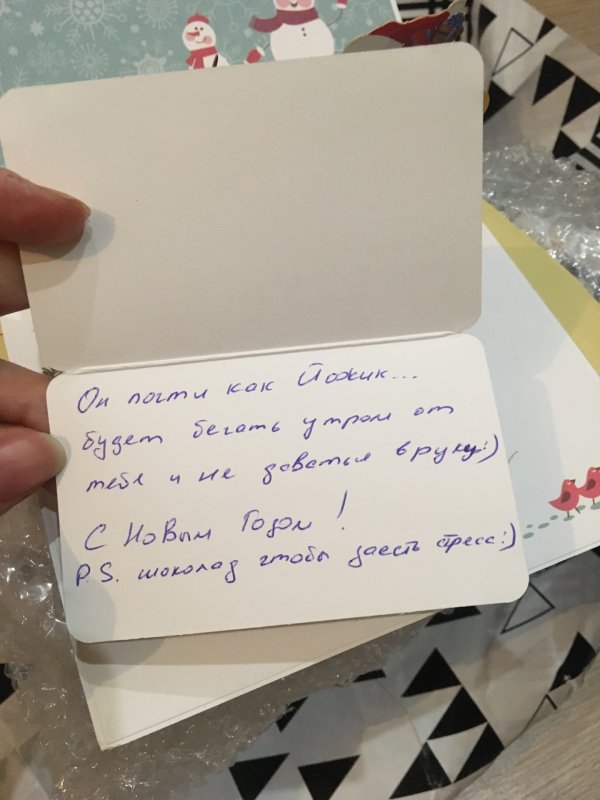 Он почти как Йожик...
будет бегать утром от
тебя и не даваться в руки:)
С Новым Годом!
P.S. шоколад чтобы заесть стресс:)